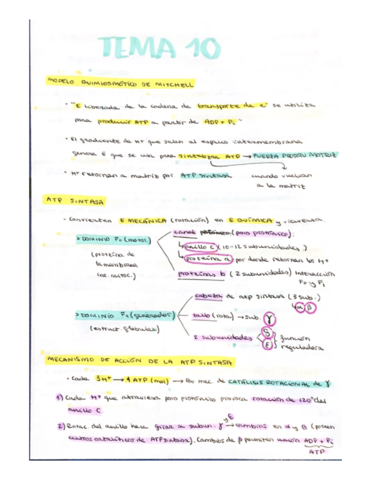 TEMA 10
MODELO QUIMIOSMÓTICO DE MITCHELL
"E liberada de la cadena de transporte de e⁻ se utiliza
para producir ATP a partir de ADP + Pi"
El gradiente de H⁺ que salen al espacio intermembrana
genera E que se usa para sintetizar ATP → FUERZA PROTÓN MOTRIZ
H⁺ retornan a matriz por ATP sintasa cuando vuelven
a la matriz
ATP SINTASA
Convierten E MECÁNICA (rotación) en E QUÍMICA y viceversa
DOMINIO F₀ (motor)
(proteína de
la membrana
int. mitoc.)
canal (paso protónico)
anillo C (10-12 subunidades)
proteína a por donde retornan los H⁺
proteínas b (2 subunidades) interacción
F₀ y F₁
DOMINIO F₁ (generador)
(estruct. globular)
cabeza de ATP sintasa (3 sub.)
α β
tallo (rota) → sub. γ
2 subunidades δ ε función
reguladora
MECANISMO DE ACCIÓN DE LA ATP SINTASA
Cada 3H⁺ → 1 ATP (mol) → Por mec de CATÁLISIS ROTACIONAL de γ
1) Cada H⁺ que atraviesa poro protónico provoca rotación de 120° del
anillo C
2) Rotac del anillo hace girar a subun. γ → cambios en α y β (poseen
centros catalíticos de ATP sintasa). Cambios de β permiten unión ADP + Pi
ε
ATP